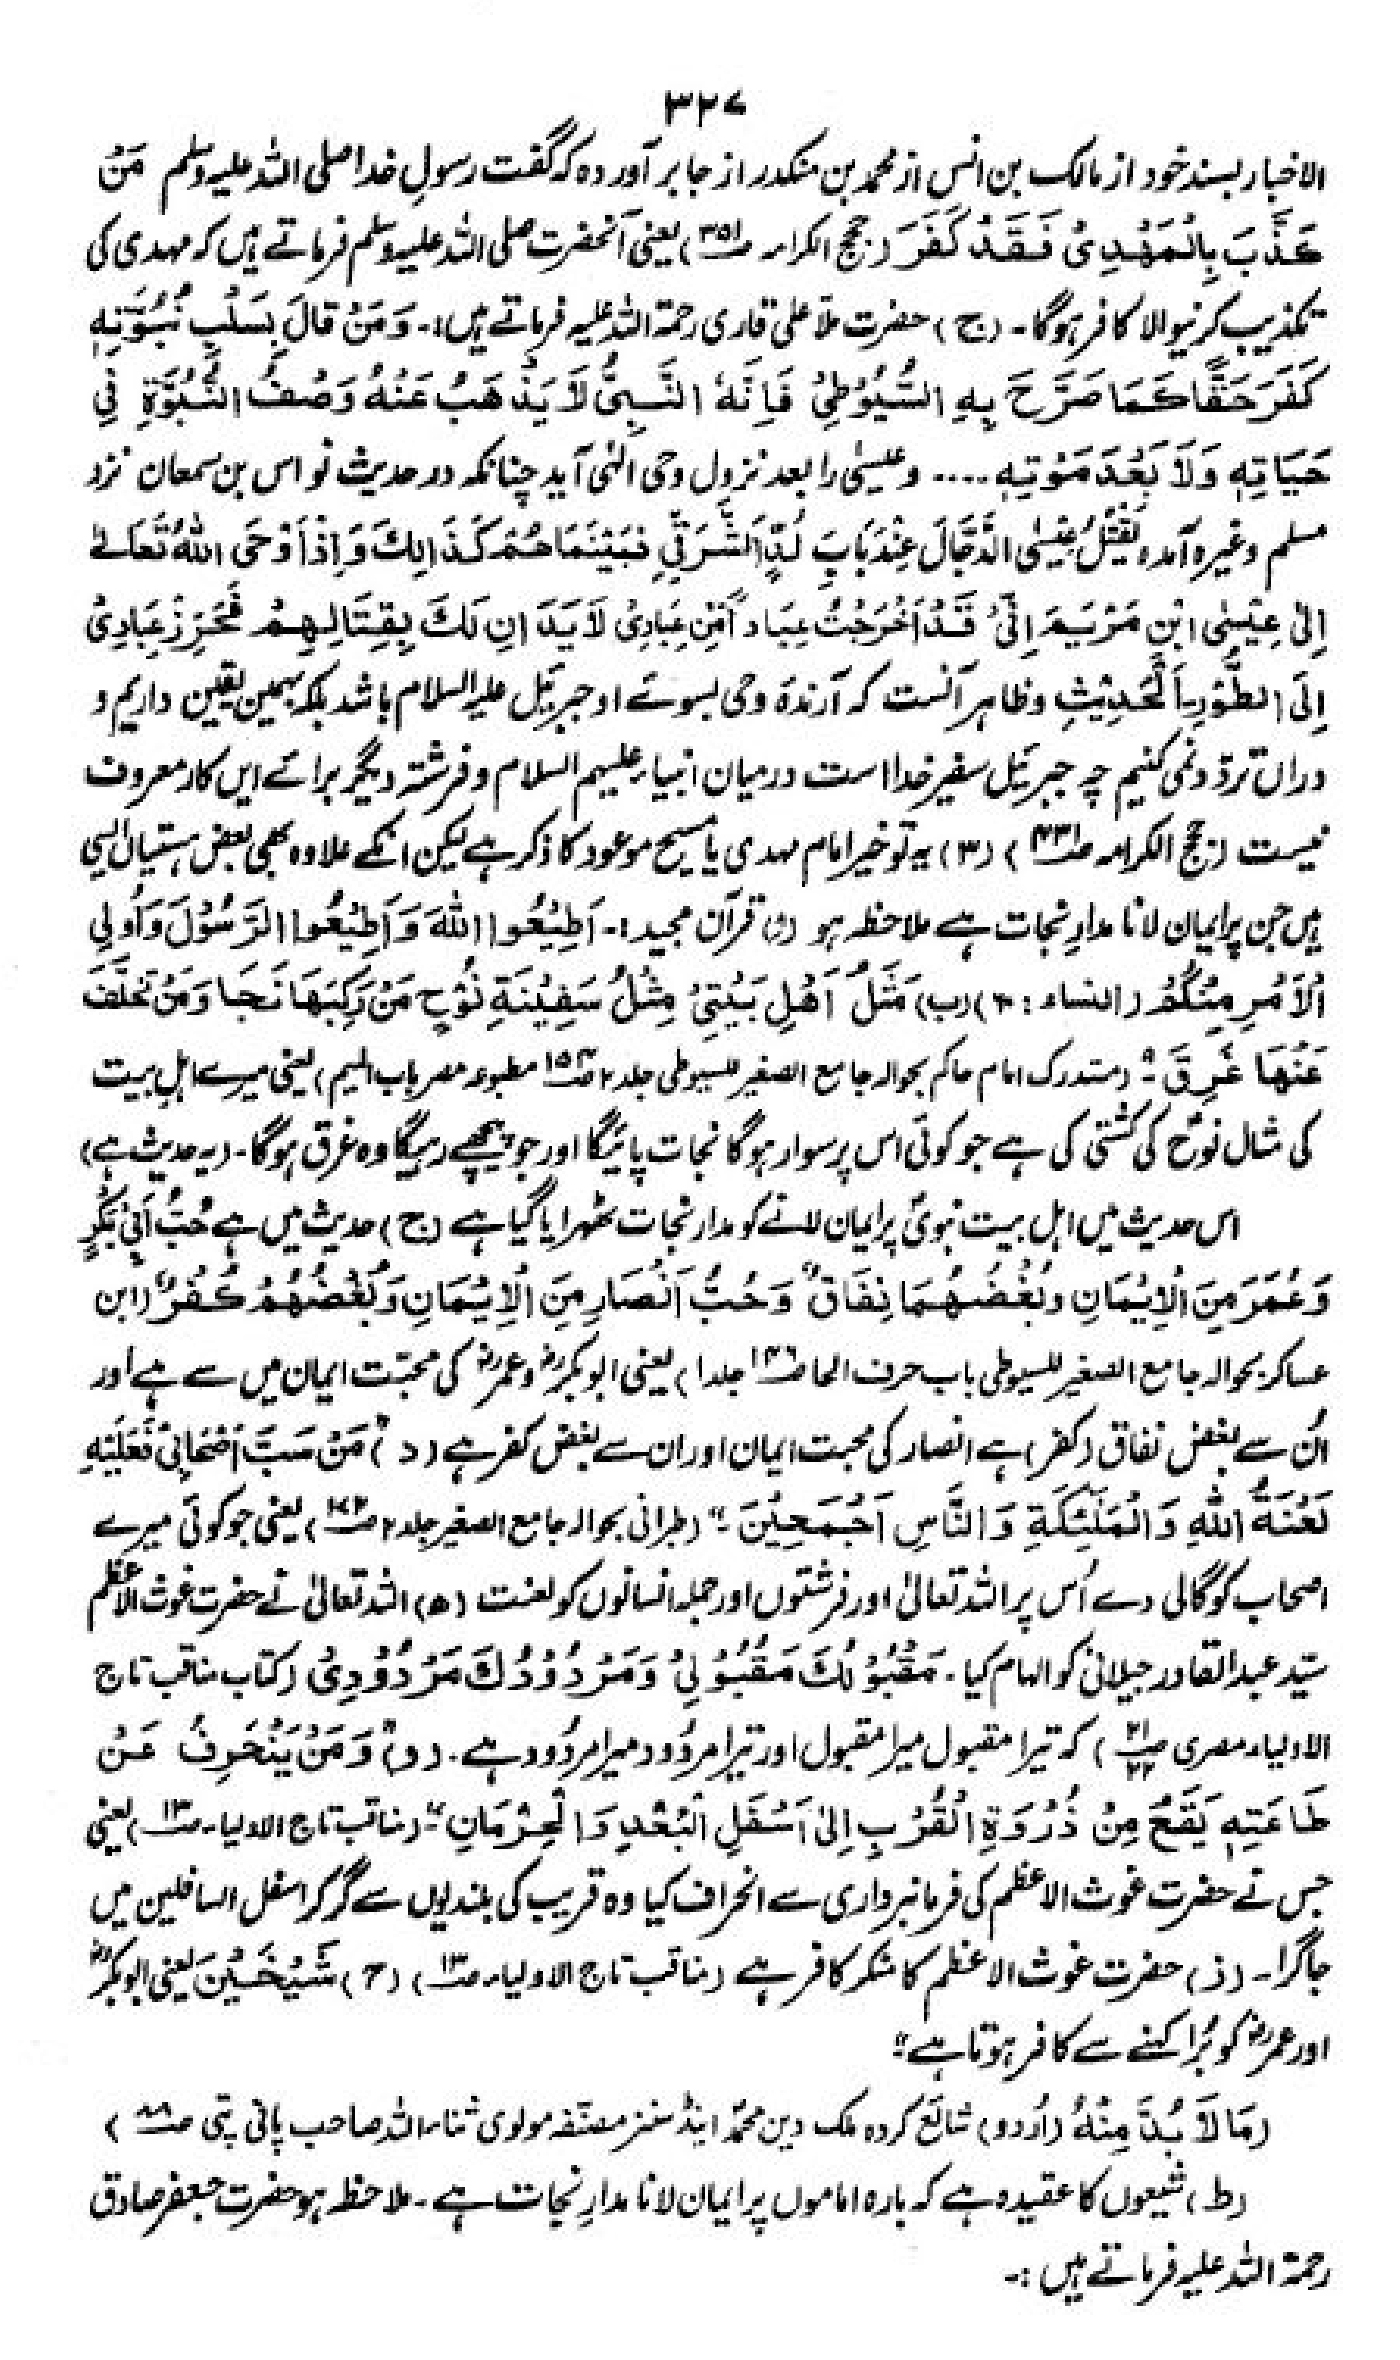 ۳۲۷
الاخبار بسند خود از مالک بن انس از محمد بن منکدر از جابر آورده کہ گفت رسولِ خدا صلی اللہ علیہ وسلم مَنْ
کَذَّبَ بِالْمَهْدِیْ فَقَدْ کَفَرَ (حجج الکرامہ صـ۳۵۱) یعنی آنحضرت صلی اللہ علیہ وسلم فرماتے ہیں کہ مہدی کی
تکذیب کرنیوالا کافر ہوگا۔ (ج) حضرت ملا علی قاری رحمۃ اللہ علیہ فرماتے ہیں:۔ وَمَنْ قَالَ بِسَلْبِ نُبُوَّتِہٖ
کَفَرَ حَقًّا کَمَا صَرَّحَ بِہِ السُّیُوْطِیُ فَاِنَّہٗ النَّبِیُّ لَا یَذْهَبُ عَنْهُ وَصْفُ النُّبُوَّةِ فِیْ
حَیَاتِہٖ وَلَا بَعْدَ مَوْتِہٖ .... و عیسیٰ را بعد نزول وحی الٰہی آید چنانکہ در حدیث نواس بن سمعان نزد
مسلم وغیرہ آمدہ یَقْتُلُ عِیْسٰی الدَّجَّالَ عِنْدَ بَابِ لُدِّ الشَّرْقِیِّ فَبَیْنَمَا هُمْ کَذَالِكَ وَاِذْ اَوْحَی اللّٰہُ تَعَالٰے
اِلٰی عِیْسٰی ابْنِ مَرْیَمَ اِنِّیْ قَدْ اَخْرَجْتُ عِبَادًا مِّنْ عِبَادِیْ لَا یَدَانِ لَكَ بِقِتَالِهِمْ فَحَرِّزْ عِبَادِیْ
اِلَی الطُّوْرِ۔ اَلْحَدِیْثِ و ظاہر آنست کہ آرندۂ وحی بسوئے او جبرئیل علیہ السلام باشد بلکہ بہمیں یقین داریم و
دراں تردّد نمی کنیم چہ جبرئیل سفیر خدا است درمیان انبیاء علیہم السلام و فرشتہ دیگر برائے ایں کار معروف
نیست (حجج الکرامہ صـ۴۳۱) (۳) یہ تو خیر امام مہدی یا مسیح موعود کا ذکر ہے لیکن انکے علاوہ بھی بعض ہستیاں ایسی
ہیں جن پر ایمان لانا مدارِ نجات ہے ملاحظہ ہو (ا) قرآن مجید:۔ اَطِیْعُوا اللّٰہَ وَاَطِیْعُوا الرَّسُوْلَ وَاُولِی
الْاَمْرِ مِنْکُمْ (النساء : ) (ب) مَثَلُ اَهْلِ بَیْتِیْ مِثْلُ سَفِیْنَةِ نُوْحٍ مَنْ رَکِبَهَا نَجَا وَمَنْ تَخَلَّفَ
عَنْهَا غَرِقَ۔“ (مستدرک امام حاکم بحوالہ جامع الصغیر للسیوطی جلد ۲ صـ مطبوعہ مصر باب المیم) یعنی میرے اہل بیت
کی مثال نوحؑ کی کشتی کی ہے جو کوئی اس پر سوار ہوگا نجات پائیگا اور جو پیچھے رہیگا وہ غرق ہوگا۔ (یہ حدیث ہے)
اس حدیث میں اہل بیت نبویؐ پر ایمان لانے کو مدار نجات ٹھہرایا گیا ہے (ج) حدیث میں ہے حُبُّ اَبِیْ بَکْرٍ
وَعُمَرَ مِنَ الْاِیْمَانِ وَبُغْضُهُمَا نِفَاقٌ وَحُبُّ اَنْصَارِ مِنَ الْاِیْمَانِ وَبُغْضُهُمْ کُفْرٌ“ (ابن
عساکر بحوالہ جامع الصغیر للسیوطی باب حرف الحا صـ۱۴۶ جلد ا) یعنی ابوبکرؓ و عمرؓ کی محبّت ایمان میں سے ہے اور
اُن سے بغض نفاق (کفر) ہے انصار کی محبت ایمان اور ان سے بغض کفر ہے (د) ”مَنْ سَبَّ اَصْحَابِیْ فَعَلَیْہِ
لَعْنَةُ اللّٰہِ وَالْمَلٰٓئِکَةِ وَالنَّاسِ اَجْمَعِیْنَ۔“ (طبرانی بحوالہ جامع الصغیر جلد ۲ صـ) یعنی جو کوئی میرے
اصحاب کو گالی دے اُس پر اللہ تعالیٰ اور فرشتوں اور جملہ انسانوں کو لعنت (ہ) اللہ تعالیٰ نے حضرت غوث الاعظم
سیّد عبدالقادر جیلانیؒ کو الہام کیا۔ مَقْبُوْلُكَ مَقْبُوْلِیْ وَمَرْدُوْدُكَ مَرْدُوْدِیْ (کتاب مناقب تاج
الاولیاء مصری صـ۲۱ ۲۲) کہ تیرا مقبول میرا مقبول اور تیرا مردُود میرا مردُود ہے۔ (و) ”وَمَنْ یَنْحَرِفُ عَنْ
طَاعَتِہٖ یَقَعُ مِنْ ذُرْوَةِ الْقُرْبِ اِلٰی اَسْفَلِ الْبُعْدِ وَالْحِرْمَانِ“۔ (مناقب تاج الاولیاء صـ۱۳) یعنی
جس نے حضرت غوث الاعظم کی فرمانبرداری سے انحراف کیا وہ قریب کی بلندیوں سے گر کر اسفل السافلین میں
جاگرا۔ (ز) حضرت غوث الاعظم کا منکر کافر ہے (مناقب تاج الاولیاء صـ۱۳) (ح) شَیْخَیْنَ یعنی ابوبکرؓ
اور عمرؓ کو بُرا کہنے سے کافر ہوتا ہے“
(مَا لَا بُدَّ مِنْہُ (اُردو) شائع کردہ ملک دین محمدؐ اینڈ سنز مصنّفہ مولوی ثناء اللہ صاحب پانی پتی صـ)
(ط) شیعوں کا عقیدہ ہے کہ بارہ اماموں پر ایمان لانا مدارِ نجات ہے۔ ملاحظہ ہو حضرت جعفر صادق
رحمۃ اللہ علیہ فرماتے ہیں :۔